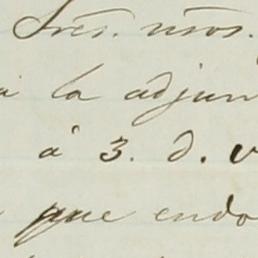 Sres. nros.
a la adjun
á 3. d. v
que endo